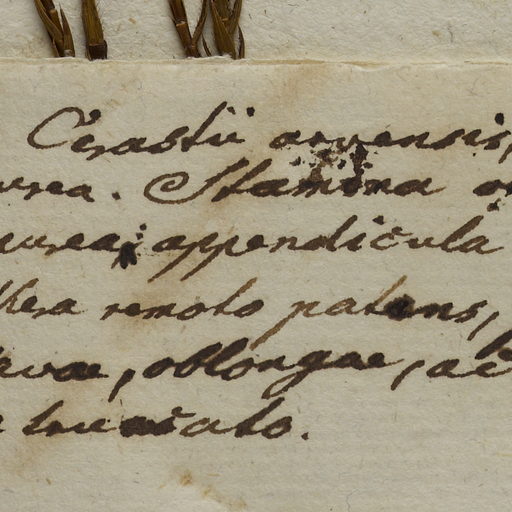 Cerastii arvensis,
urea. Stamina
urea; appendicula
thera remoto patens,
avae, oblongae, ac
truncato.